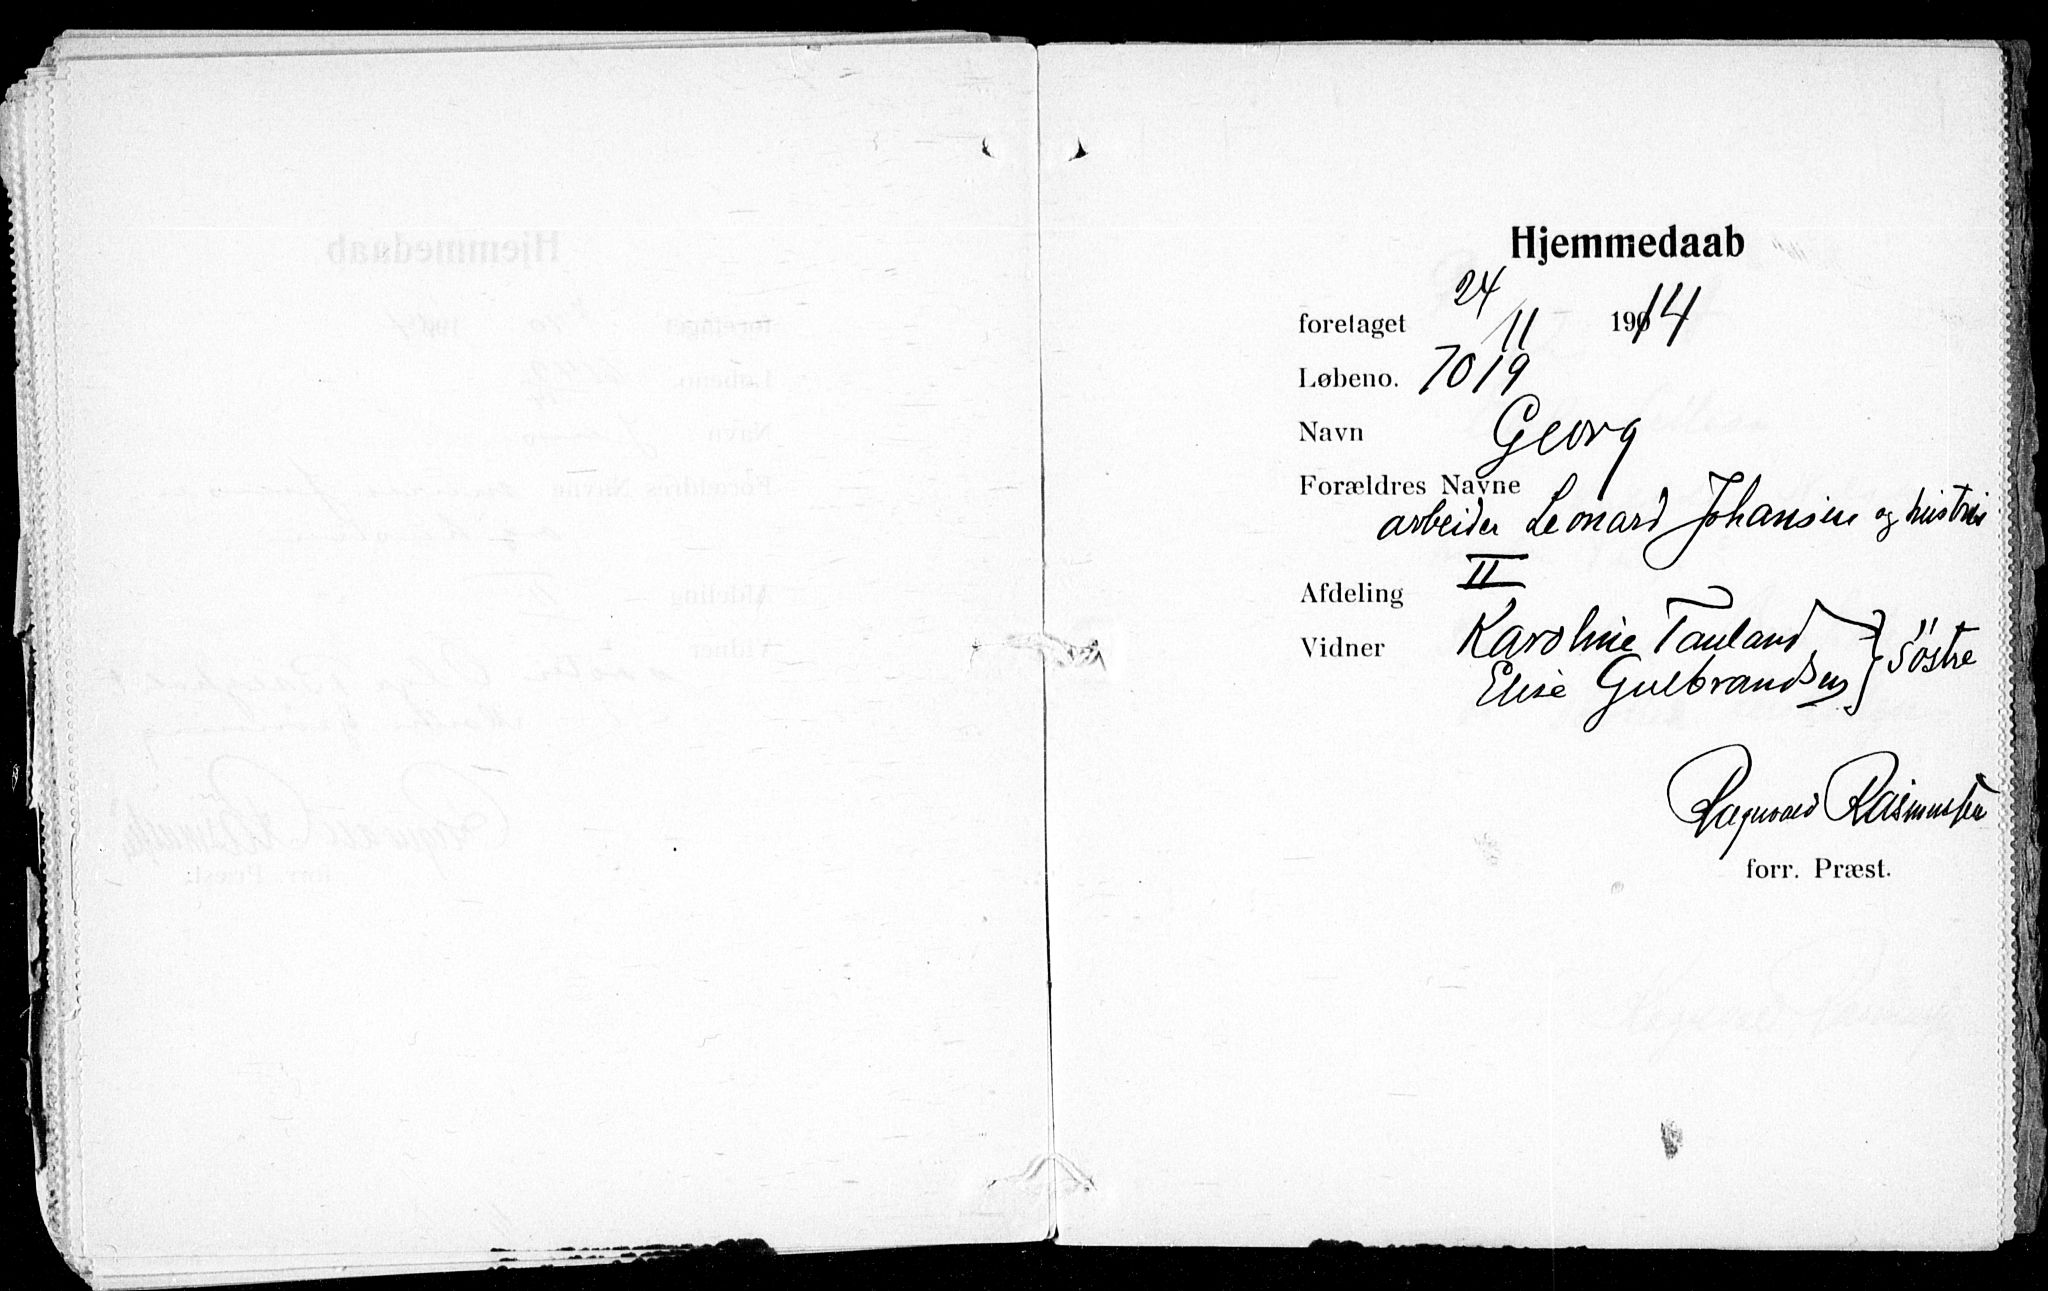 Hjemmedaab
foretaget 24/11 1914
Løbeno. 7019
Navn Georg
Forældres Navne
arbeider Leonard Johansen og hustru
Afdeling II
Vidner Karoline Tauland } Søstre
Elise Gulbrandsen
Ragnvald Rasmussen
forr. Præst.